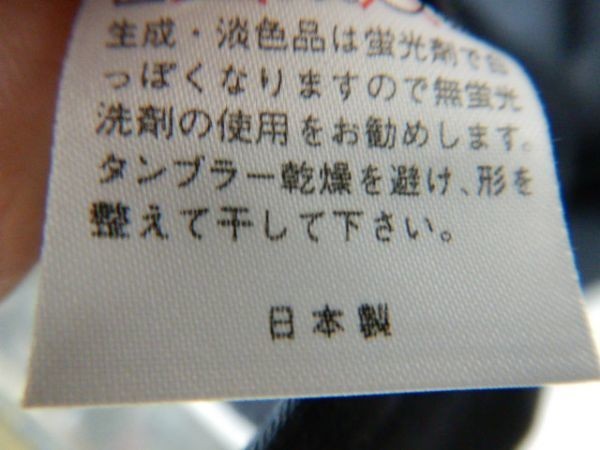 生成・淡色品は蛍光剤で白
っぽくなりますので無蛍光
洗剤の使用をお勧めします。
タンブラー乾燥を避け、形を
整えて干して下さい。
日本製